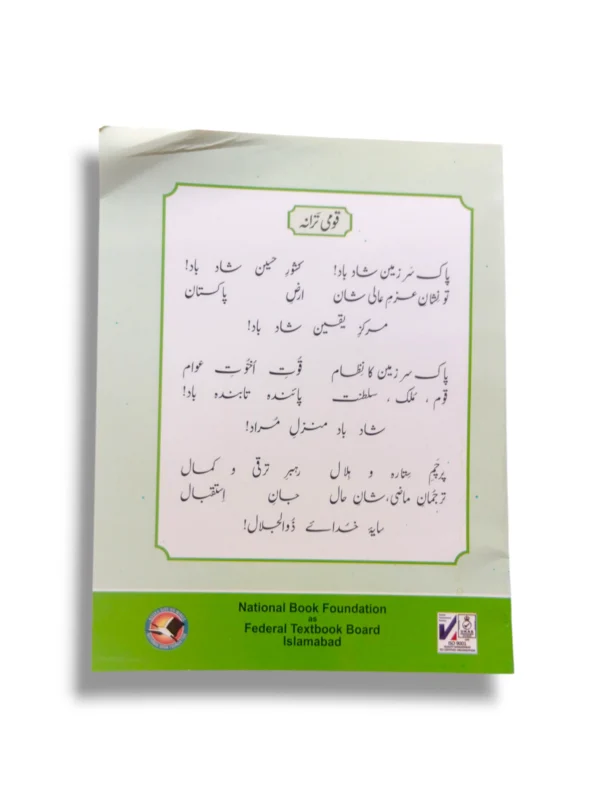 قومی ترانہ
پاک سَرزمین شاد باد! کشورِ حسین شاد باد!
تو نشانِ عزمِ عالی شان ارضِ پاکستان
مرکزِ یقین شاد باد!
پاک سرزمین کا نِظام قوّتِ اُخُوّتِ عوام
قوم ، مُلک ، سلطنت پائندہ تابندہ باد!
شاد باد منزلِ مُراد!
پرچمِ ستارہ و ہلال رہبرِ ترقی و کمال
ترجُمانِ ماضی، شانِ حال جانِ اِستقبال
سایۂ خُدائے ذُوالجلال!
National Book Foundation
as
Federal Textbook Board
Islamabad
ISO 9001